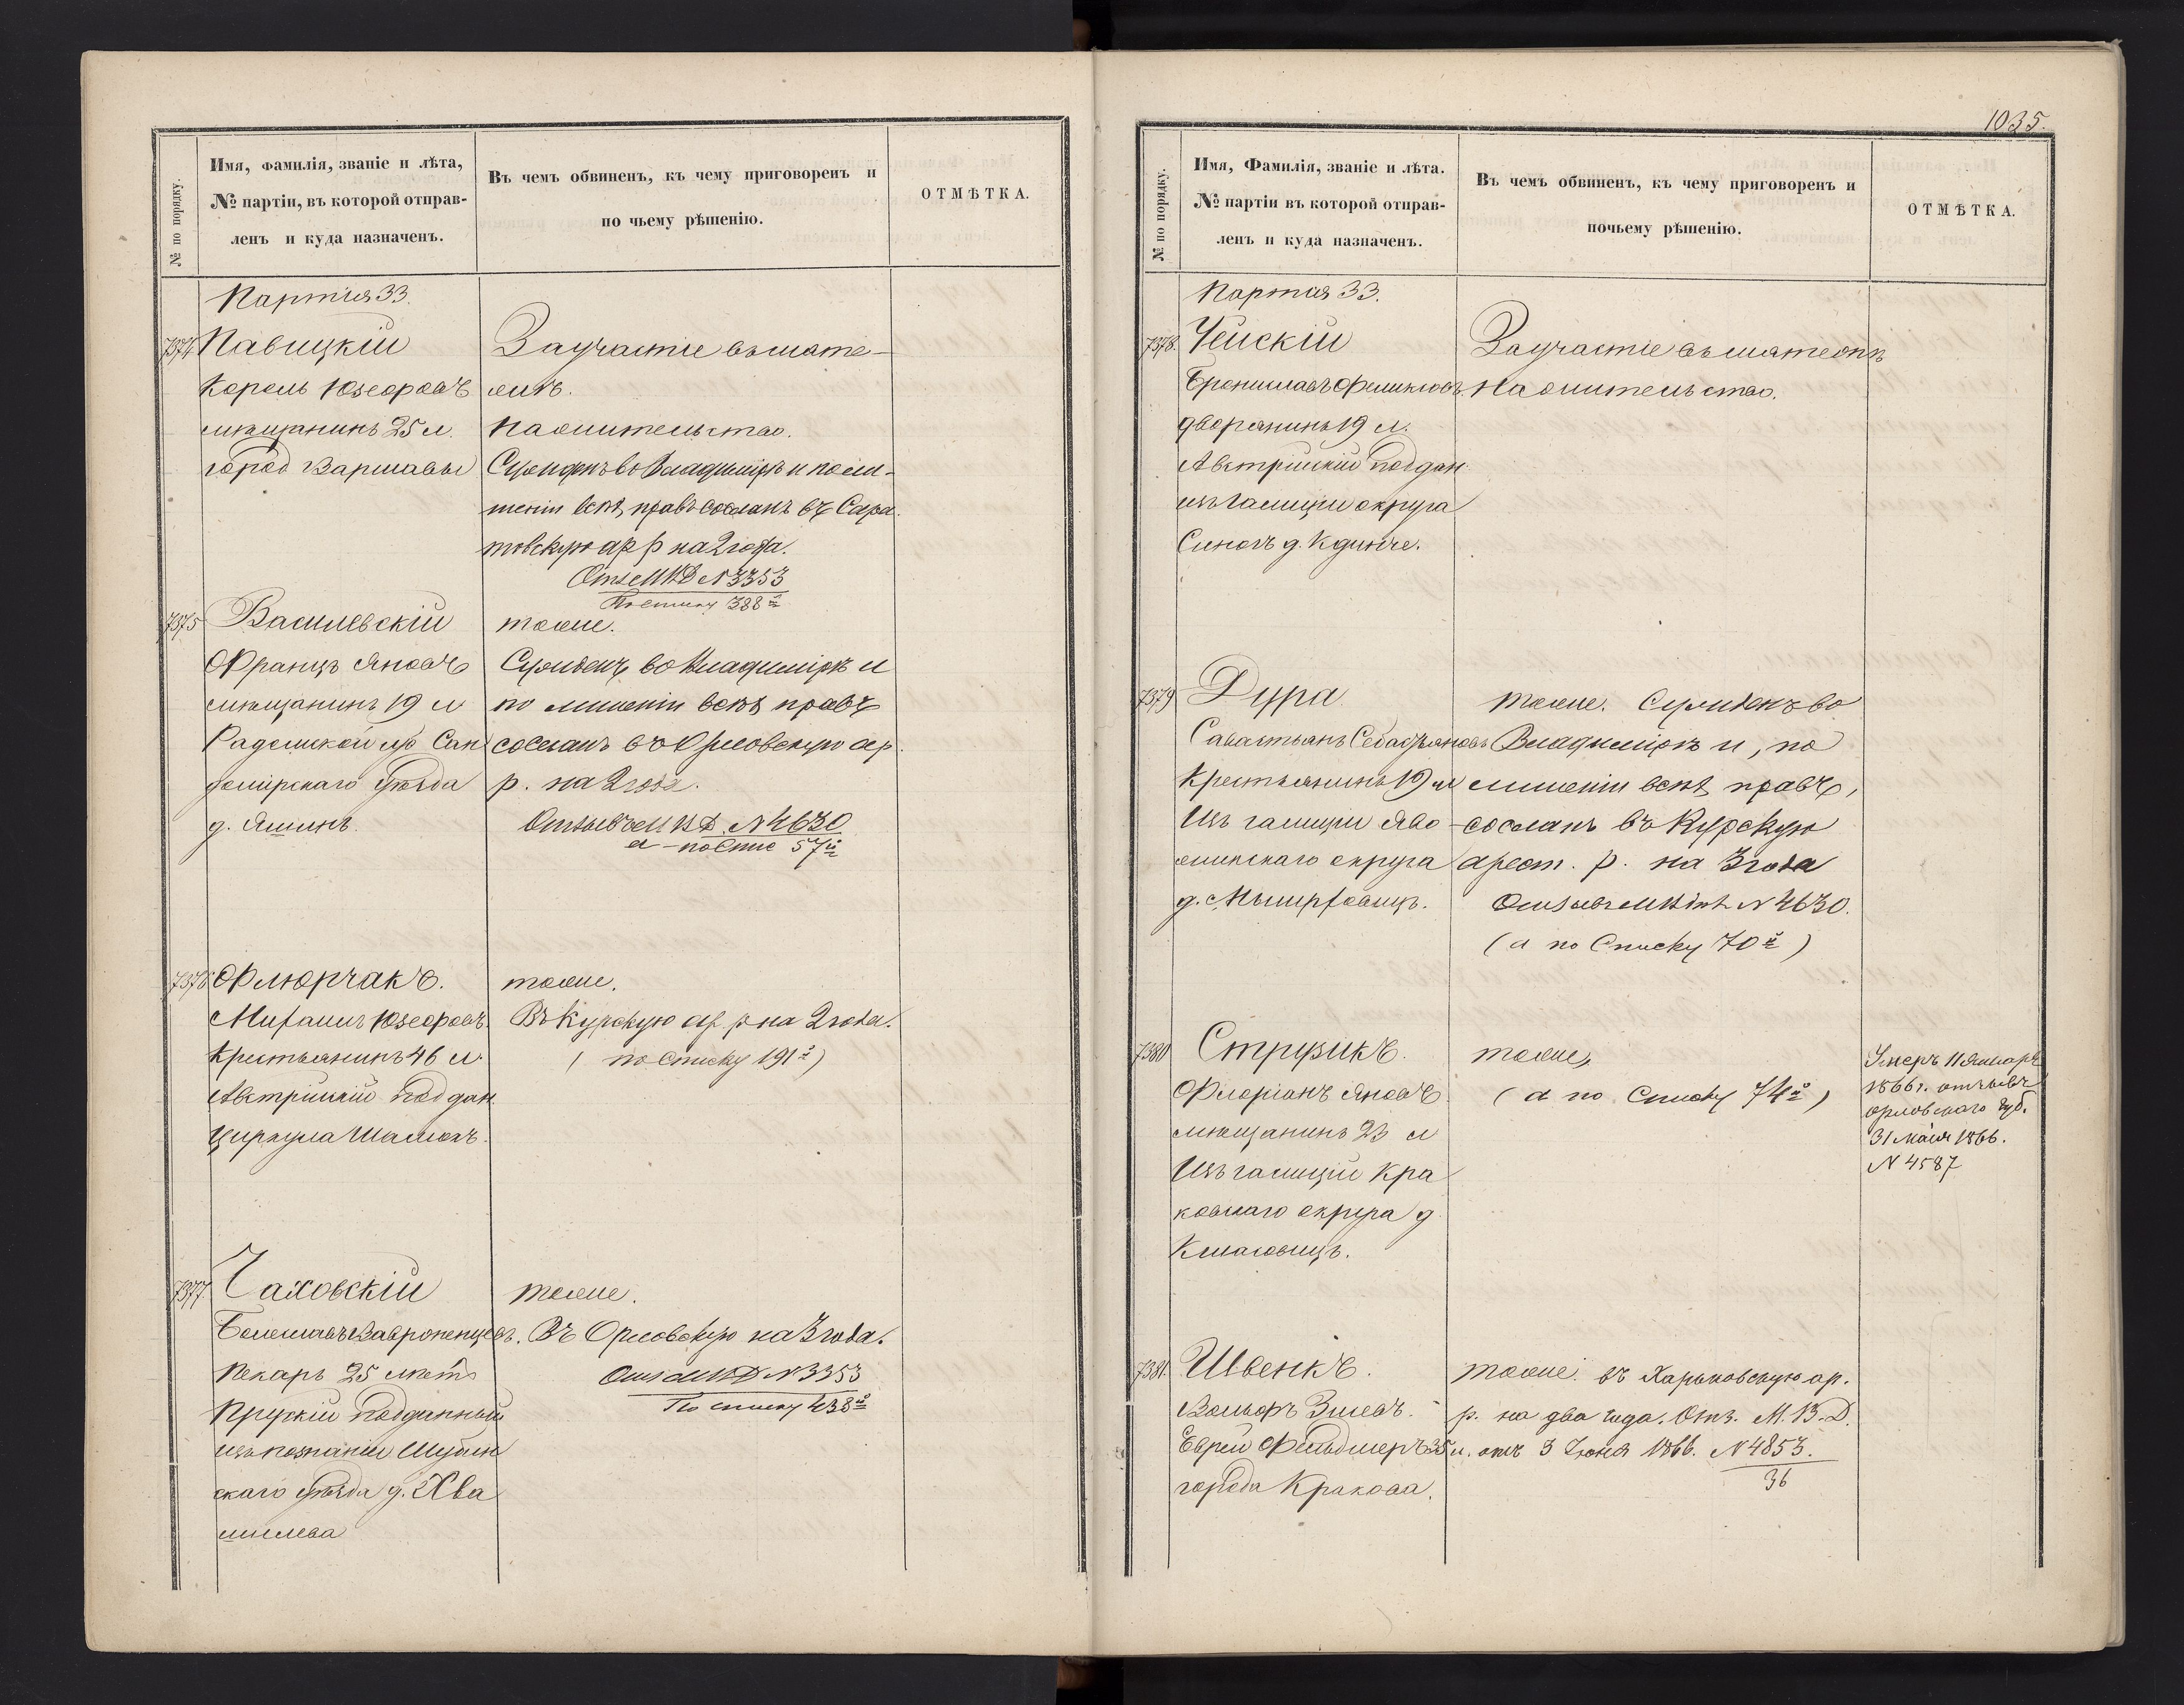 Имя, фамилія, званіе и лѣта,
№ партіи, въ которой отправ-
ленъ и куда назначенъ.
№ по порядку.
Въ чемъ обвиненъ, къ чему приговоренъ и
по чьему рѣшенію.
ОТМѢТКА.
Партія 33.
7374 Павицкій
Кароль Юзефовъ
мѣщанинъ 25 л.
город Варшавы
За участіе въ мяте-
жѣ.
На жительство.
Сужденъ во Владимірѣ и по ли-
шеніи всѣхъ правъ сосланъ въ Сара
товскую ар р на 2 года.
Отз МВД № 3353
По списку 388й
7375 Василевскій
Францъ Яновъ
мѣщанинъ 19 л
Радомской гу Сан
домирскаго уѣзда
д.
тоже.
Сужденъ во Владимірѣ и
по лишеніи всѣхъ правъ
сосланъ въ Орловскую ар.
р. на 2 года.
Отзывъ М В Д. № 4630
а по Спис 57й
7376 Флюрчакъ.
Михаилъ Юзефовъ.
Крестьянинъ 46 л.
Австрійскій поддан.
Циркула
тоже.
Въ Курскую ар. р на 2 года.
( по Списку 191й)
7377. Чаховскій
Болеславъ Вавроненцевъ.
Пекарь 25 лѣтъ
Прускій подданный
изъ познаніи Шубин
скаго уѣзда д. Хва
тоже.
Въ Орловскую на 3 года.
Отз МВД № 3353
По списку 438й
1035.
№ по порядку.
Имя, Фамилія, званіе и лѣта.
№ партіи въ которой отправ-
ленъ и куда назначенъ.
Въ чемъ обвиненъ, къ чему приговоренъ и
почьему рѣшенію.
ОТМѢТКА.
Партія 33.
7378. Чейскій
Брониславъ Феликсовъ.
дворянинъ 19 л.
Австрійскій поддан
изъ Галиціи округа
д.
За участіе въ мятежѣ
На жительство.
7379 Дура
Савастьянъ Себастьяновъ
Крестьянинъ 19 л
Изъ галиціи Яво
округа
д.
тоже. Сужденъ во
Владимірѣ и, по
лишеніи всѣхъ правъ,
сосланъ въ Курскую
арест. р. на 3 года
Отзывъ МВД № 4630.
(а по Списку 70й)
7380 Струзикъ.
Флоріанъ Яновъ
мѣщанинъ 23 л
Изъ галиціи Кра
ковскаго округа д
тоже,
(а по Списку 74й)
Умеръ 11 Января
1866 г. отзывъ
орловскаго губ.
31 мая 1866.
№ 4587
7381. Швенкъ.
Вольфъ
Еврей Фельдшеръ 35 л.
города Кракова.
тоже. въ Харьковскую ар.
р. на два года. Отз. М. В. Д.
отъ 3 Іюня 1866. № 4853.
36